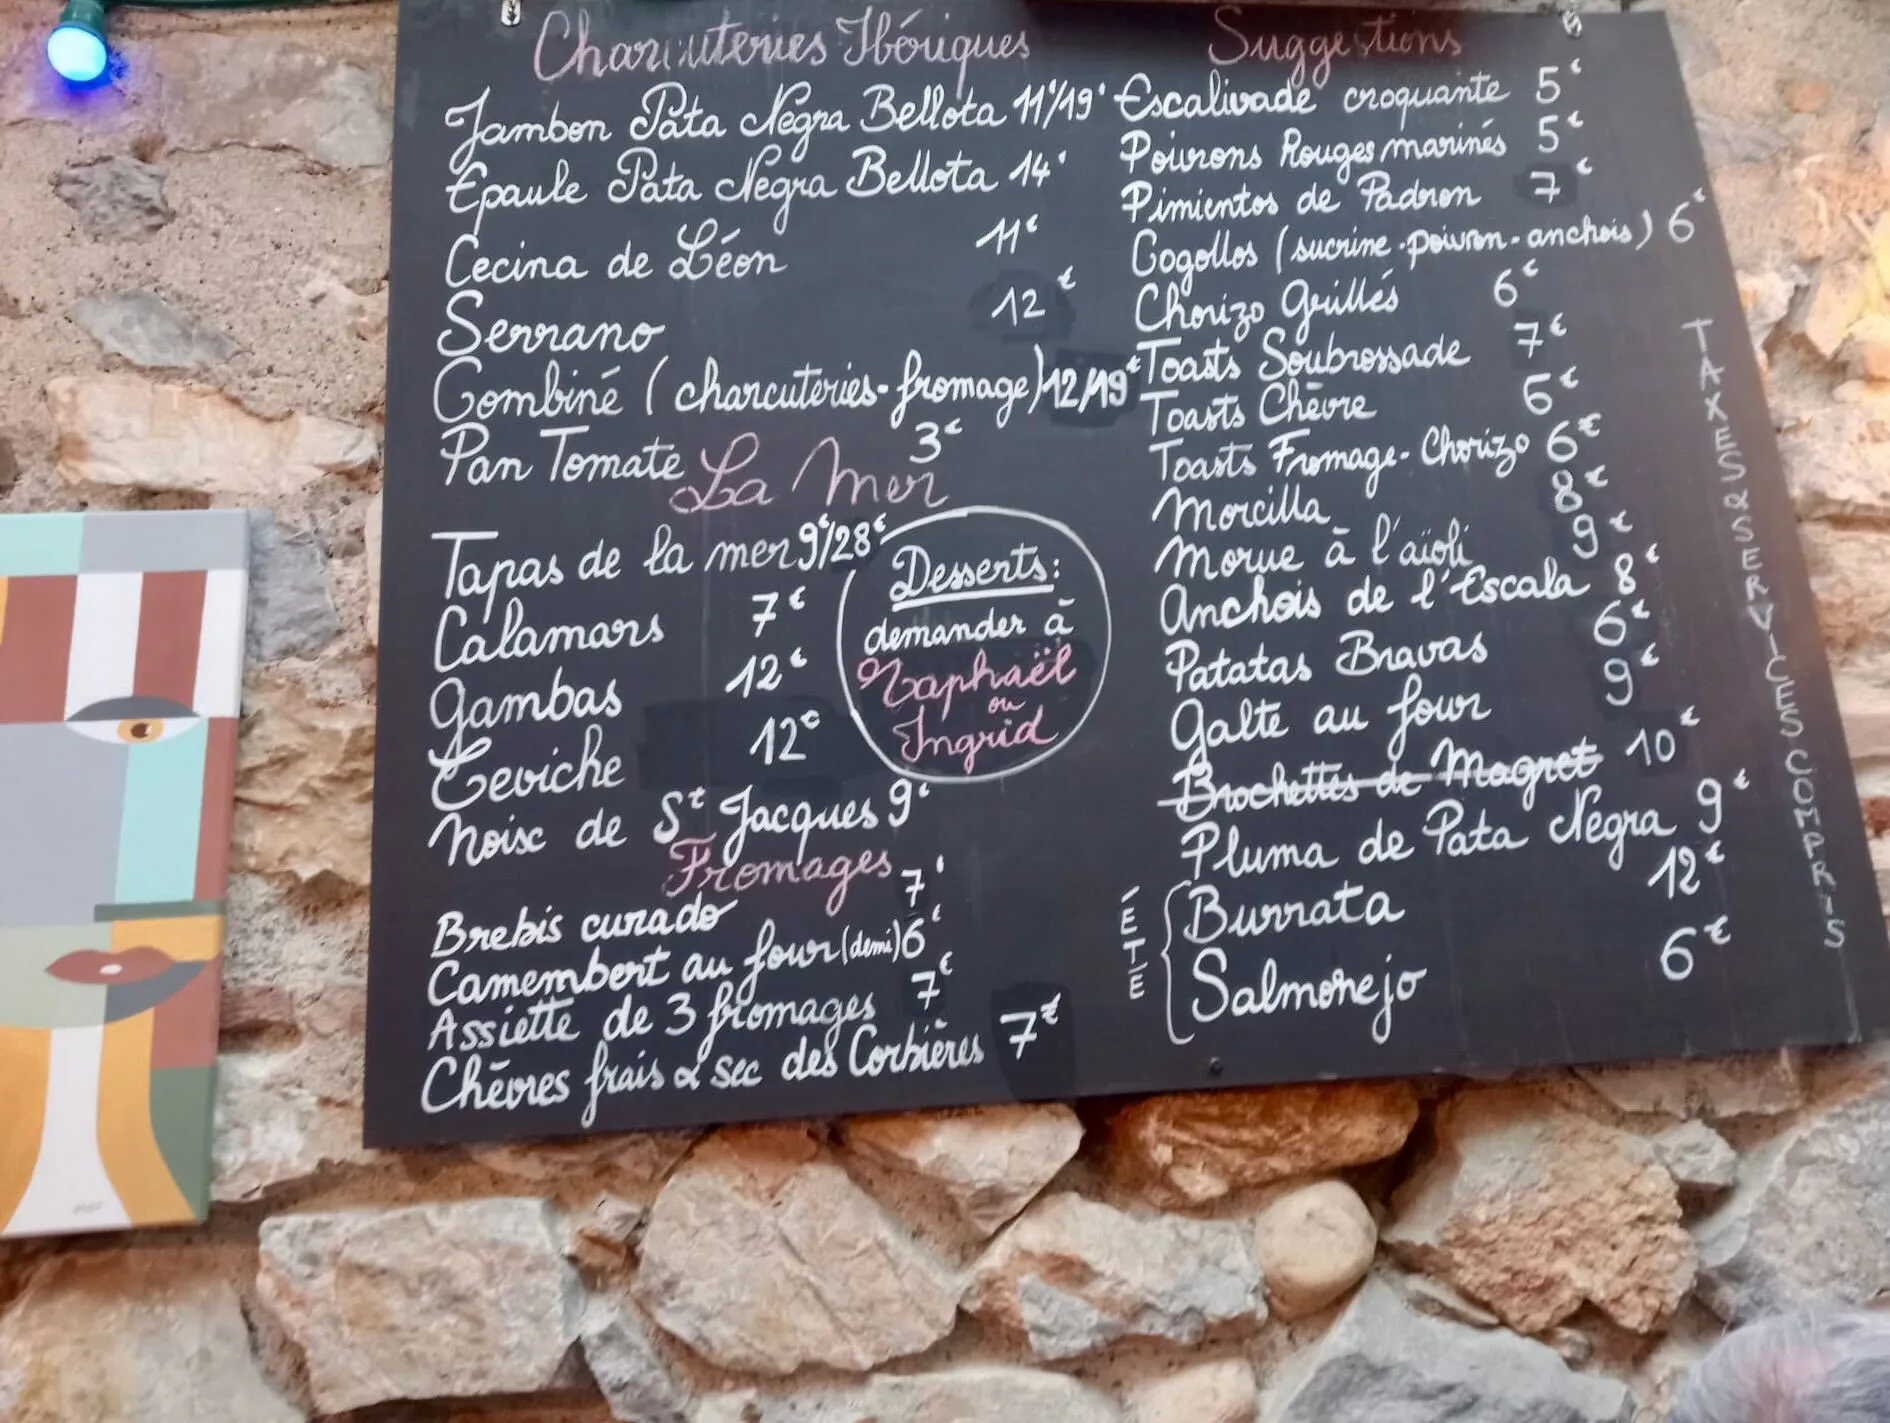 Charcuteries Ibériques
Jambon Pata Negra Bellota 11€/19€
Epaule Pata Negra Bellota 14€
Cecina de Léon 11€
Serrano 12€
Combiné (charcuteries-fromage) 12/19€
Pan Tomate 3€
La Mer
Tapas de la mer 9€/28€
Calamars 7€
Gambas 12€
Ceviche 12€
Noix de St Jacques 9€
Desserts:
demander à
Raphaël
ou
Ingrid
Fromages
Brebis curado 7€
Camembert au four (demi) 6€
Assiette de 3 fromages 7€
Chèvres frais & sec des Corbières 7€
Suggestions
Escalivade croquante 5€
Poivrons Rouges marinés 5€
Pimientos de Padron 7€
Cogollos (sucrine-poivron-anchois) 6€
Chorizo Grillés 6€
Toasts Soubressade 7€
Toasts Chèvre 6€
Toasts Fromage-Chorizo 6€
Morcilla 8€
Morue à l'aïoli 9€
Anchois de l'Escala 8€
Patatas Bravas 6€
Galte au four 9€
Brochettes de Magret 10€
Pluma de Pata Negra 9€
ÉTÉ
Burrata 12€
Salmorejo 6€
TAXES & SERVICES COMPRIS